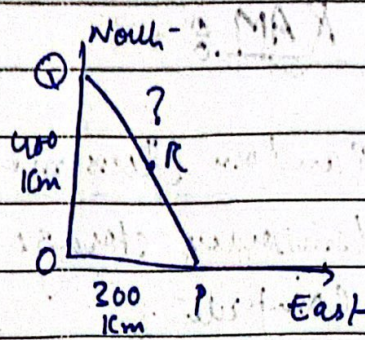 North
Q
?
400
Km
R
O
300
Km
P
East